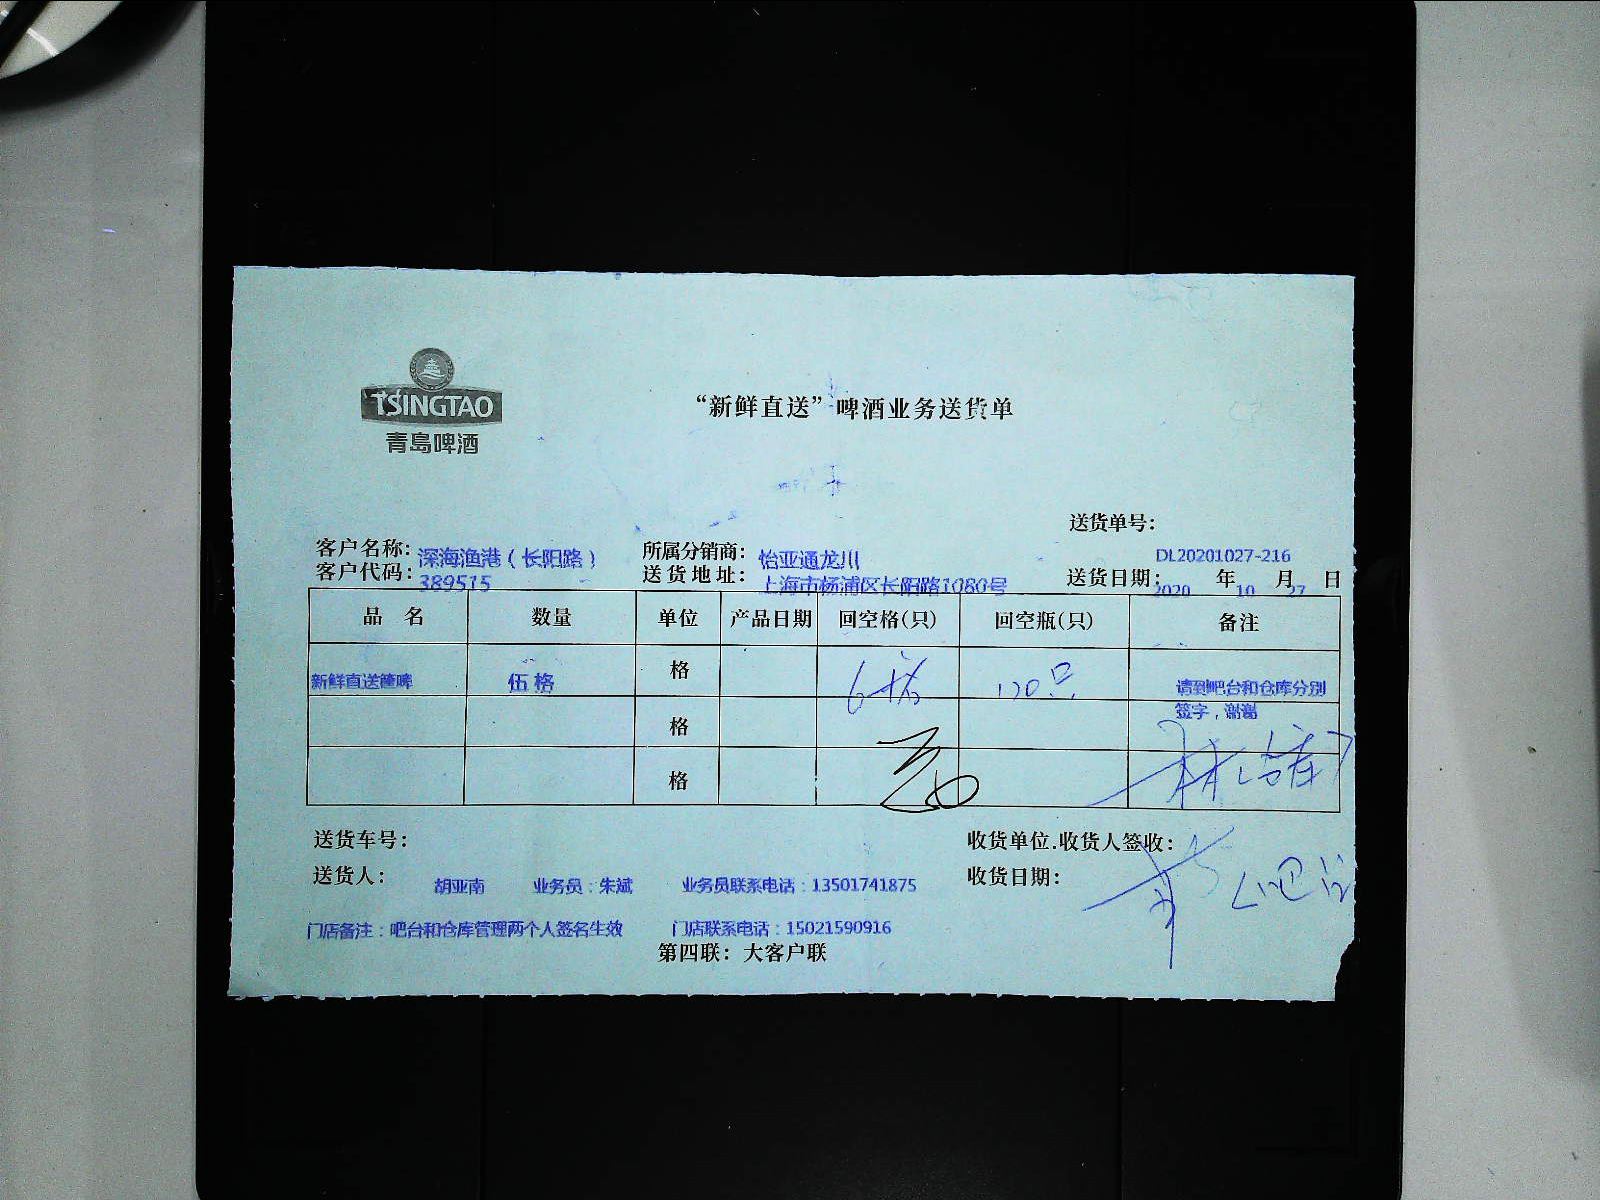 TSINGTAO
青岛啤酒
“新鲜直送”啤酒业务送货单
送货单号：
DL20201027-216
客户名称：深海渔港（长阳路） 所属分销商：怡亚通龙川
客户代码：389515 送货地址：上海市杨浦区长阳路1080号 送货日期：2020 年 10 月 27 日
品 名 数量 单位 产品日期 回空格(只) 回空瓶(只) 备注
新鲜直送箱啤 伍格 格 6格 120只 请到吧台和仓库分别
签字，谢谢
格
格
送货车号： 收货单位.收货人签收：
送货人： 胡亚南 业务员：朱斌 业务员联系电话：13501741875 收货日期：
门店备注：吧台和仓库管理两个人签名生效 门店联系电话：15021590916
第四联：大客户联